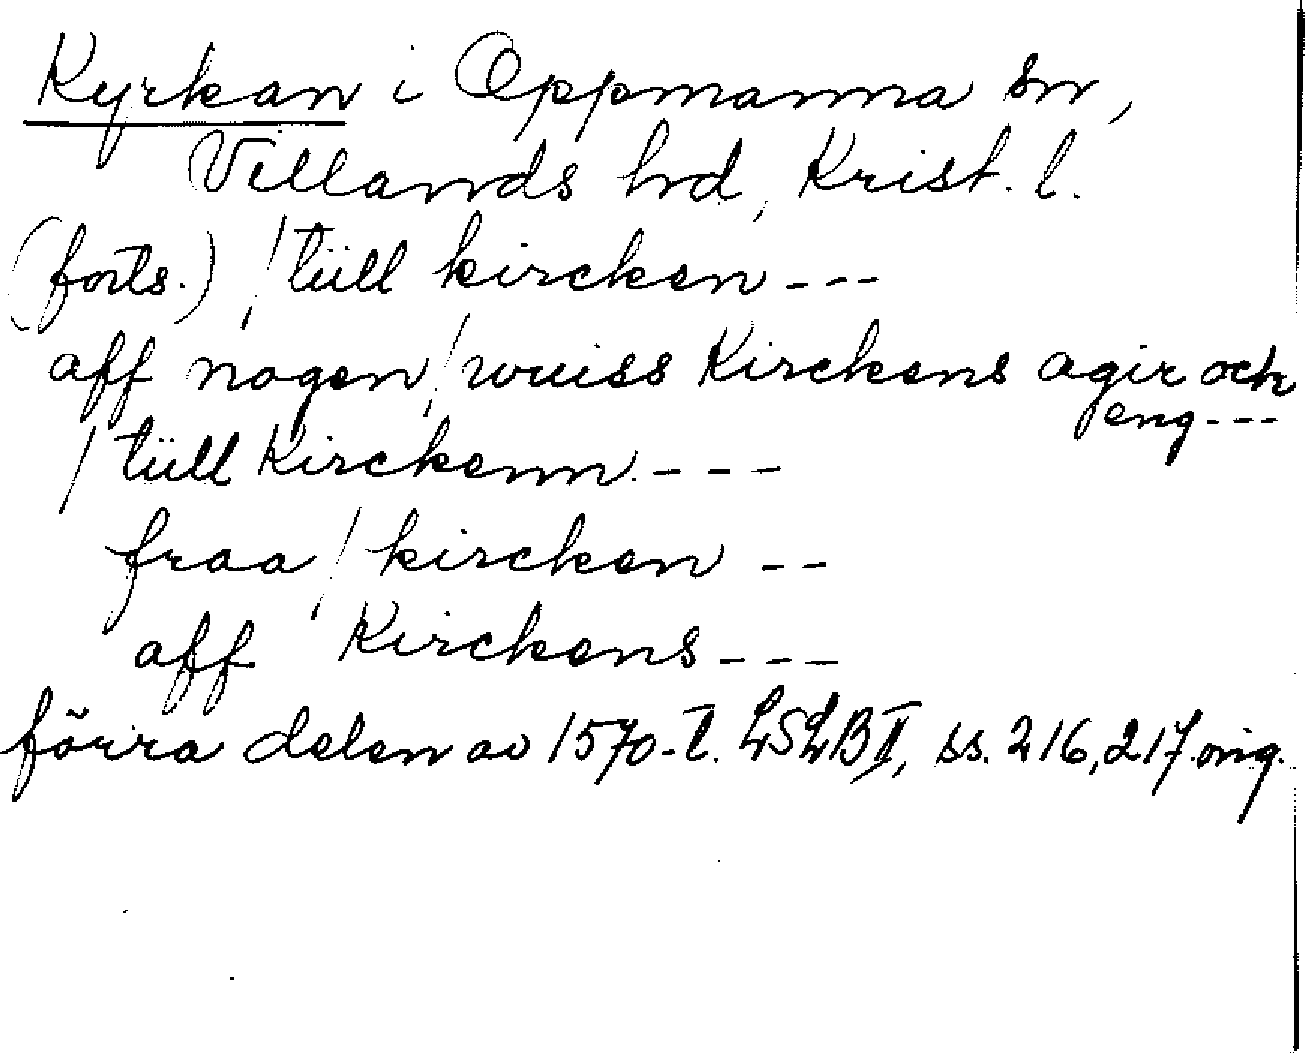 Kyrkan i Oppmanna sn,
Villands hd, Krist. l.
(forts.) / tüll kircken ---
aff nogen / wuiss Kirckens agir och
eng ---
/ tüll Kirckenn. ---
fraa / kircken --
aff Kirckens ---
förra delen av 1570-t. LSLB II, ss. 216, 217. orig.